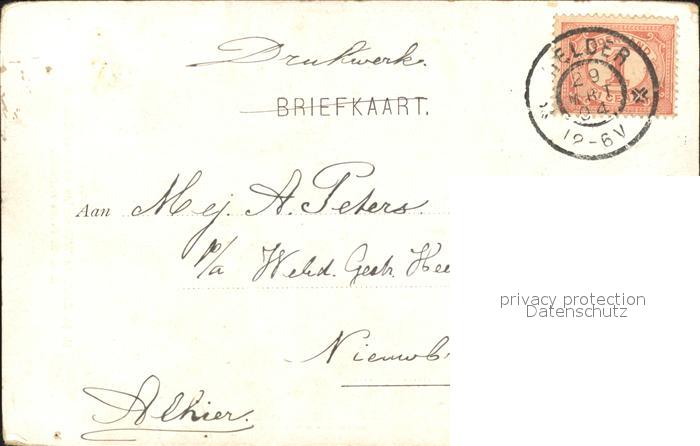 Drukwerk.
BRIEFKAART.
HELDER
29
MRT
04
12-6V
Aan Mej. A. Peters.
p/a Wed. Gebr. Hee
Nieuwb
Alhier.
privacy protection
Datenschutz